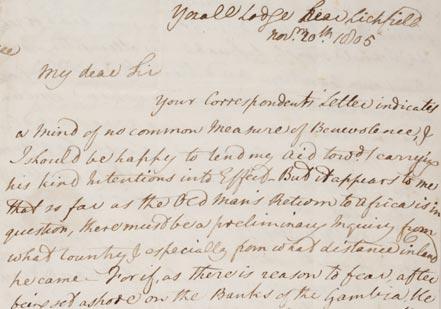 Yoxall Lodge near Lichfield
Nov.r 20th 1805
My dear Sir
Your Correspondents Letter indicates
a mind of no common Measure of Benevolence, &
I should be happy to lend my Aid towds carrying
his kind Intentions into Effect - But it appears to me
that so far as the Old Man's Return to Africa is in
question, there must be a preliminary Inquiry from
what Country, & especially from what distance inland
he came - For if, as there is reason to fear, after
being set ashore on the Banks of the Gambia He